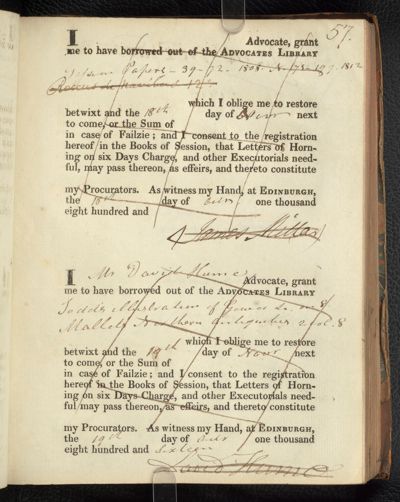 57.
I Advocate, grant
me to have borrowed out of the ADVOCATES LIBRARY
Papers - 39-72- 1808. 1812
which I oblige me to restore
betwixt and the 18th day of next
to come, or the Sum of
in case of Failzie; and I consent to the registration
hereof in the Books of Session, that Letters of Horn-
ing on six Days Charge, and other Executorials need-
ful, may pass thereon, as effeirs, and thereto constitute
my Procurators. As witness my Hand, at EDINBURGH,
the 18th day of one thousand
eight hundred and
James Millar
I Mr David Hume Advocate, grant
me to have borrowed out of the ADVOCATES LIBRARY
Todd's illustration of Gower &c. 8
Mallets Northern antiquities 2 vol. 8
which I oblige me to restore
betwixt and the 19th day of Novr next
to come, or the Sum of
in case of Failzie; and I consent to the registration
hereof in the Books of Session, that Letters of Horn-
ing on six Days Charge, and other Executorials need-
ful may pass thereon, as effeirs, and thereto constitute
my Procurators. As witness my Hand, at EDINBURGH,
the 19th day of one thousand
eight hundred and Sixteen
David Hume